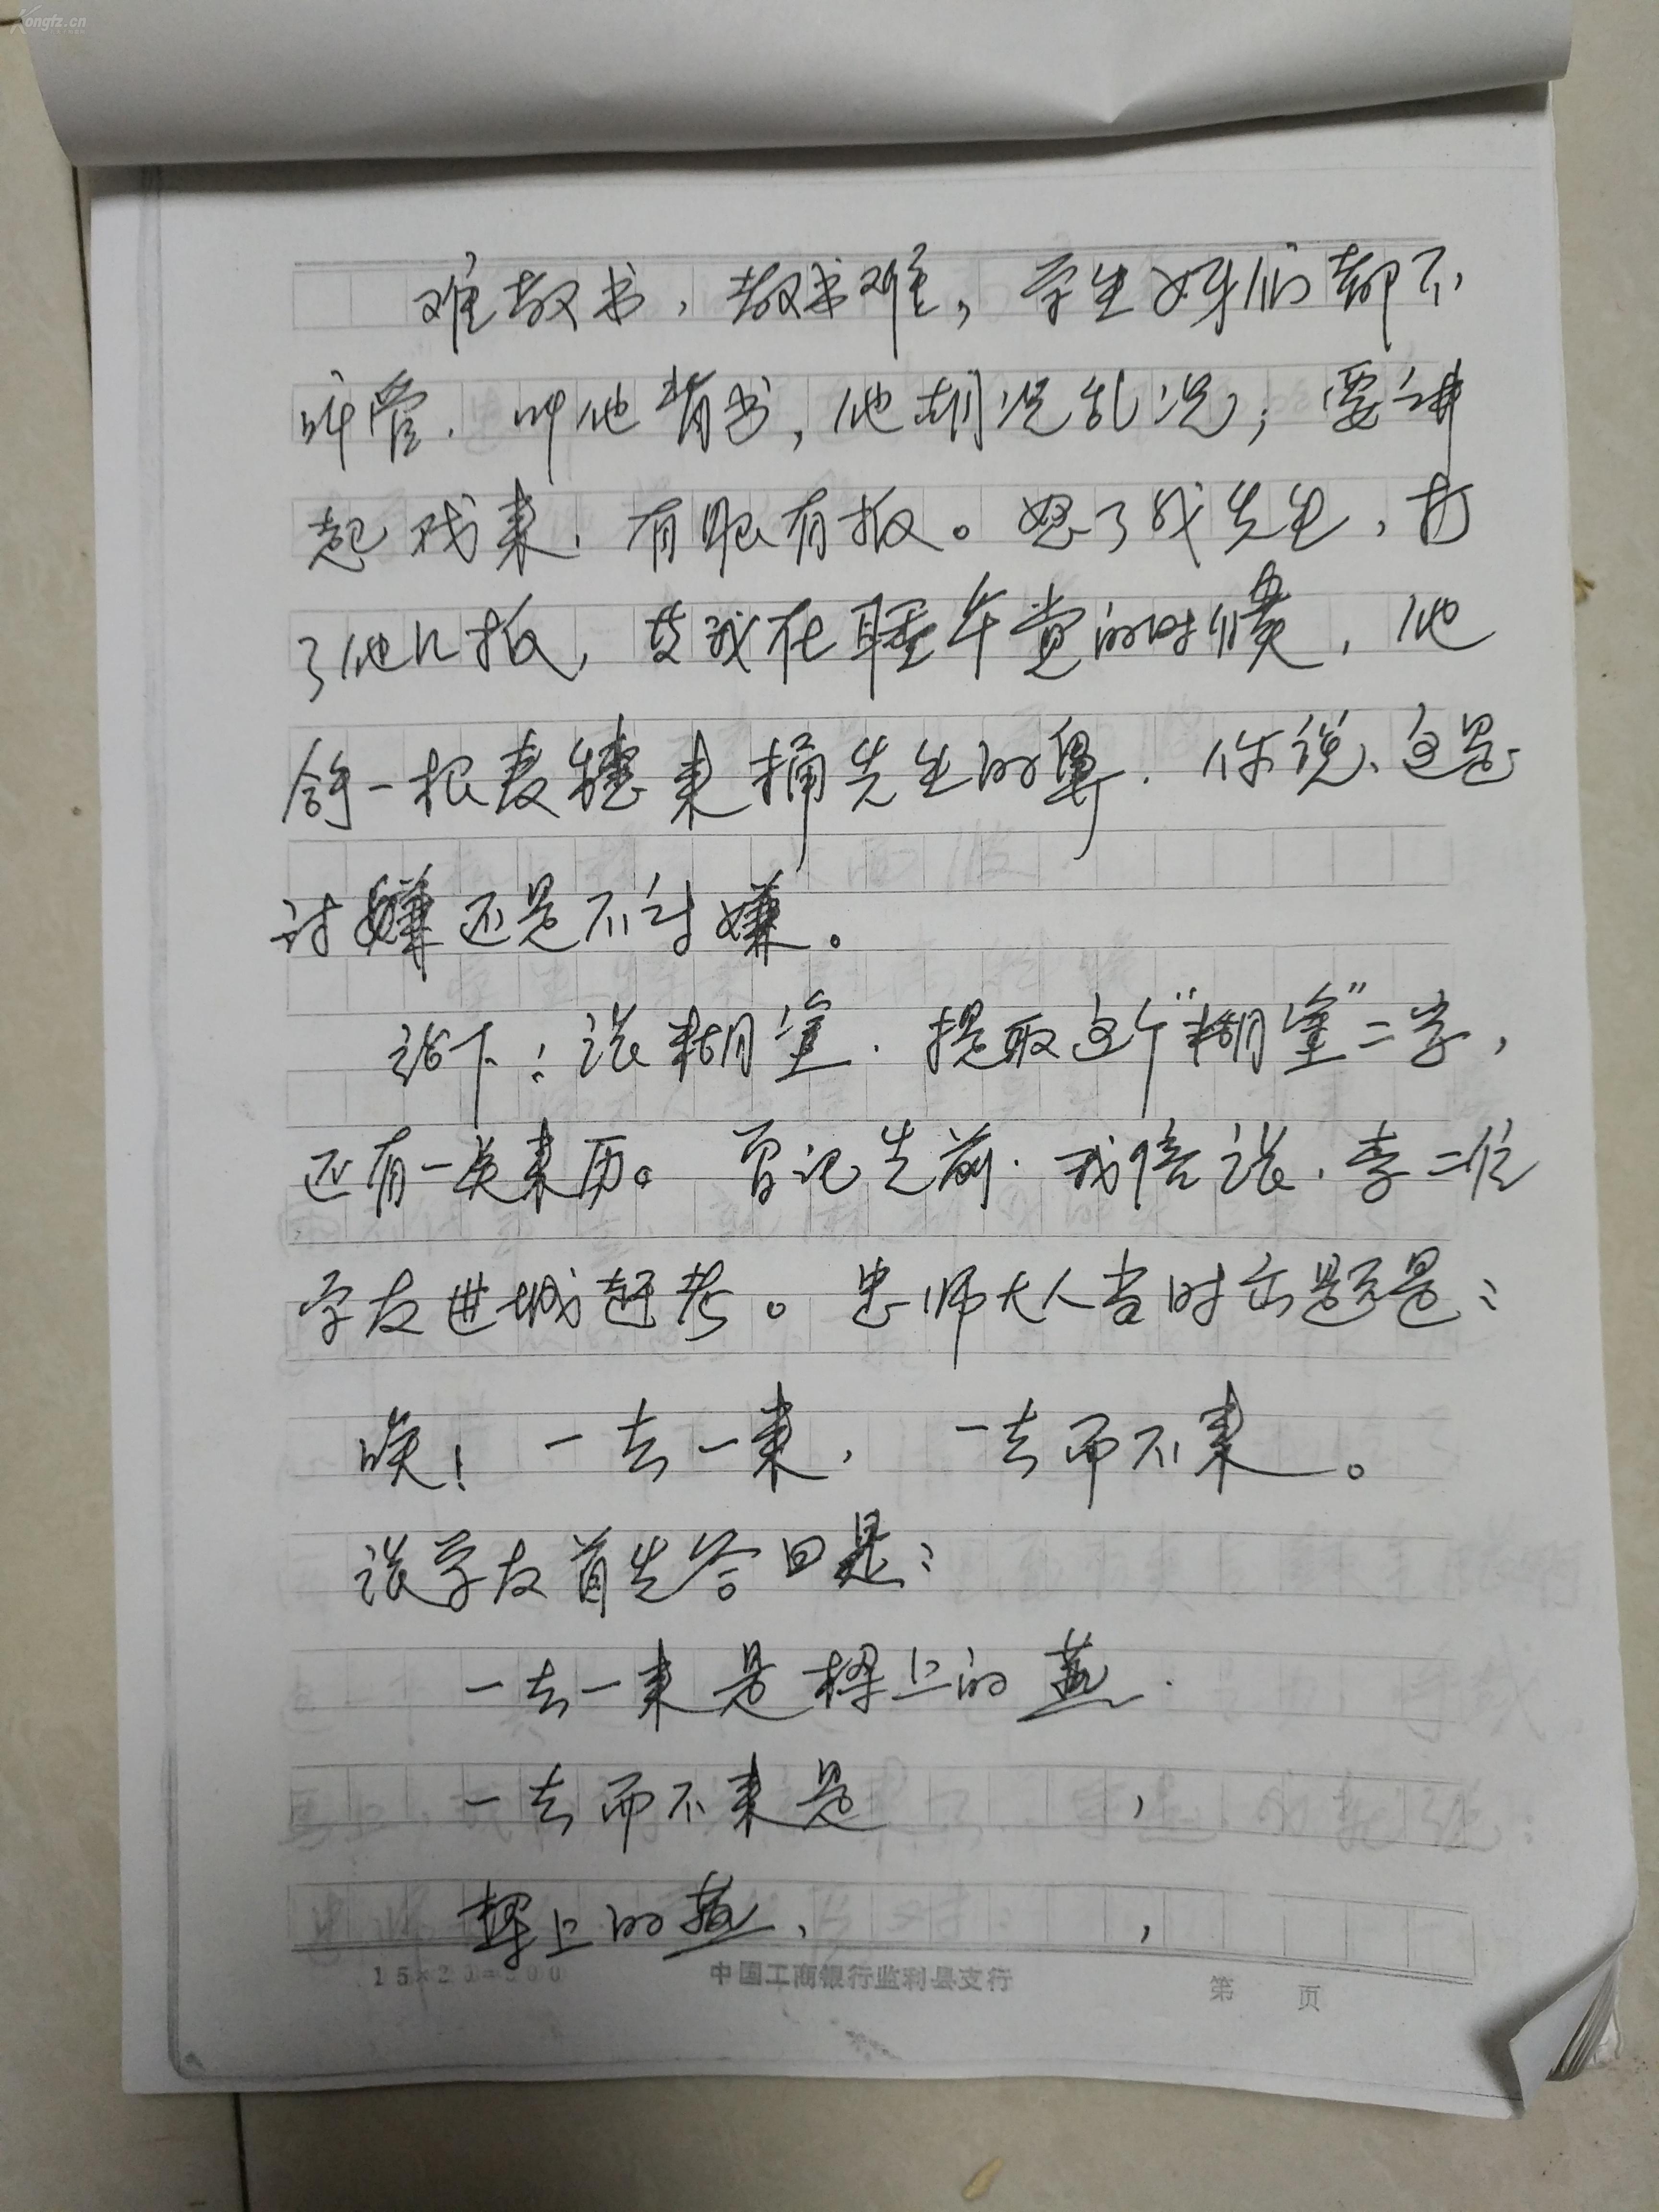 Kongfz.cn
难教书，教书难，学生伢们都不
听管．叫他背书，他胡说乱说；要讲
起戏来，有眼有板。怒了我先生，打
了他几板，趁我在睡午觉的时候，他
拿一根麦穗来捅先生的鼻．你说，这是
讨嫌还是不讨嫌。
在下：张糊涂．提取这个“糊涂”二字，
还有一点来历。曾记先前．我偕张．李二位
学友进城赶考。恩师大人当时出题是：
唉！一去一来，一去而不来。
张学友首先答曰是：
一去一来是梁上的燕．
一去而不来是　　　，
梁上的燕，　　　，
15×20=300 中国工商银行监利县支行 第 页